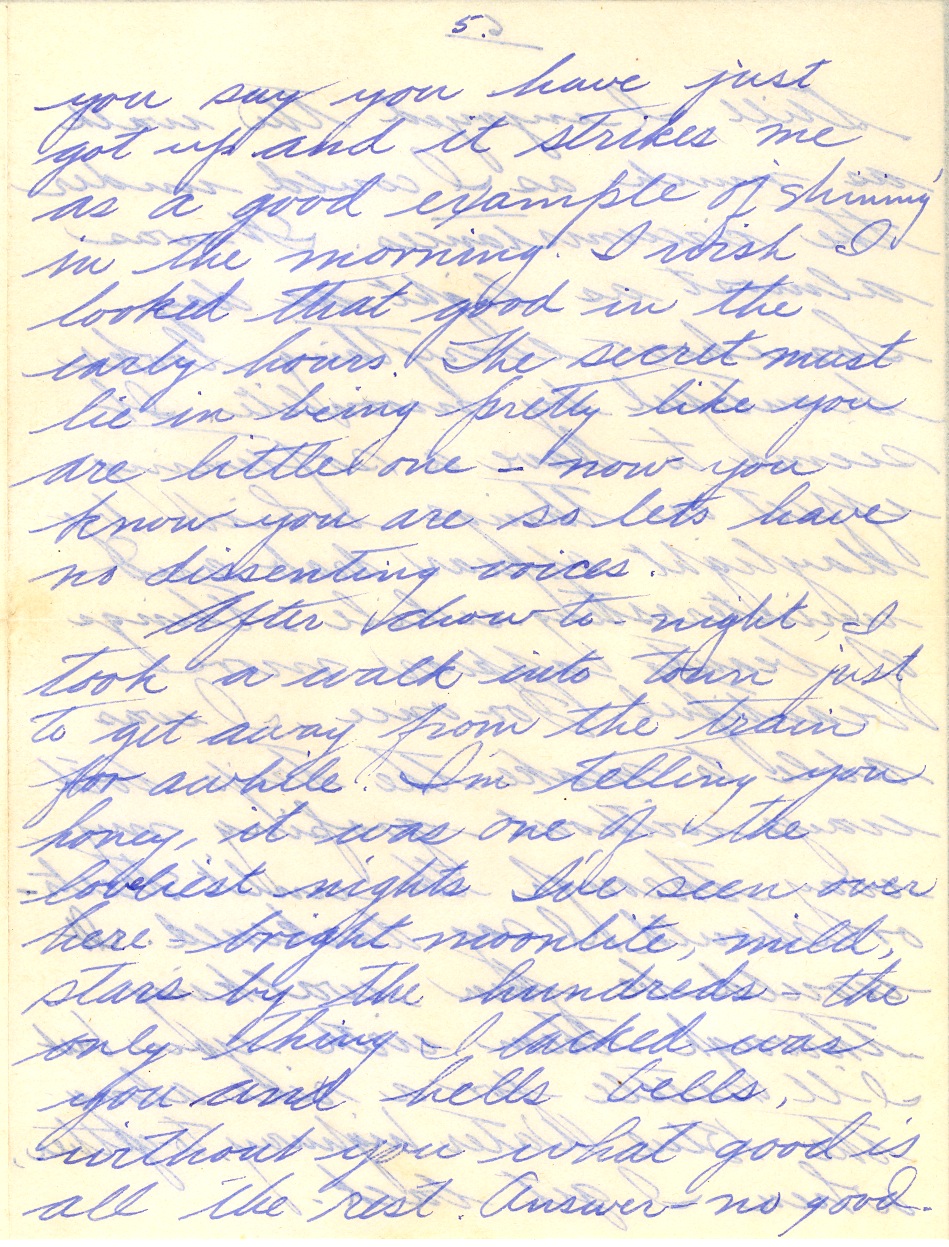 5.
you say you have just
got up and it strikes me
as a good example of shining
in the morning. I wish I
looked that good in the
early hours. The secret must
lie in being pretty like you
are little one - now you
know you are so lets have
no dissenting voices.
After chow to-night, I
took a walk into town just
to get away from the train
for awhile. I'm telling you
honey, it was one of the
loveliest nights I've seen over
here - bright moonlite, mild,
stars by the hundreds - the
only thing I lacked was
you and hells bells,
without you what good is
all the rest. Answer - no good.